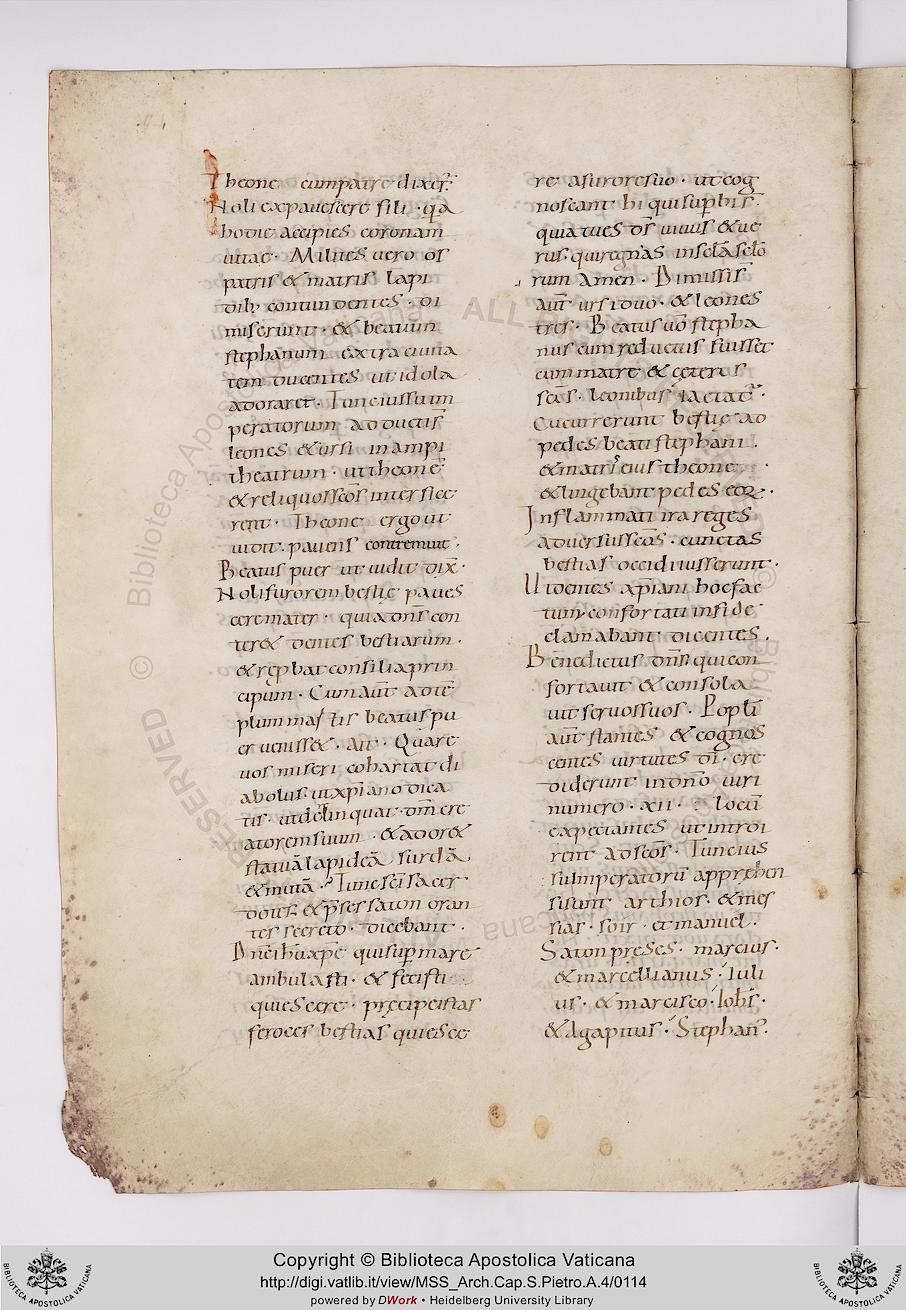 Theone cumpatre dixer̄
Noli expauescere fili · qa
hodie accipies coronam
uitae · Milites uero os
patris & matris lapi
dib; contundentes · di
miserunt · & beatum
stephanum extra ciuita
tem ducentes ut idola
adoraret · Tunc iussu im
peratorum adductis
leones & ursi in ampi
theatrum · ut theone
& reliquos scōs inter fice
rent · Theone ergo ut
uidit · pauens contremuit ·
Beatus puer ut uidit dix̄ ·
Noli furorem bestię paues
cere mater · quia dn̄s con
ter& dentes bestiarum ·
& reprobat consilia prin
cipum · Cum aut̄ ad tē
plum martis beatus pu
er uenisse& · ait · Quare
uos miseri cohartat di
abolus ut xp̄iano dica
tis · ut delinquat · dm̄ cre
atorem suum · & ador&
statuā lapideā surdā
& mutā · Tunc sc̄i sacer
dotes & p̄ses saton oran
tes secreto · dicebant ·
Dn̄e ih̄u xp̄e qui sup mare
ambulasti · & fecisti
quiescere · pręcipe istas
feroces bestias quiesce
re a furore suo · ut cog
noscant hi qui sup̄bis̄
quia tu es ds̄ uiuus & ue
rus · qui regnas in scl̄a sclō
rum amen · Dimissis̄
aut̄ ursi duo · & leones
tres · Beatus uō stepha
nus cum reductus fuisset
cum matre & ceteris
scīs · leonibus iactat̄ ·
Cucurrerunt bestię ad
pedes beati stephani ·
& matris eius theone
& lingebant pedes eoꝝ ·
Inflammati ira reges
aduersus scōs · cunctas
bestias occidi iusserunt ·
Uidentes xp̄iani hoc fac
tum confortati in fide
clamabant dicentes ·
Benedictus dn̄s qui con
fortauit & consola
uit seruos suos · Popli
aut̄ stantes & cognos
centes uirtutes dī · cre
diderunt in dn̄o uiri
numero · xii · locū
expectantes ut introi
rent ad scōs · Tunc ius
su imperatorū apprehen
si sunt arthios · & mes
sias · soir · et manuel ·
Saton preses · marcius ·
& marcellianus · Iuli
us · & marcisco · Iohs̄ ·
& Agapitus · Stephan̄ ·
BIBLIOTECA APOSTOLICA VATICANA
Copyright © Biblioteca Apostolica Vaticana
http://digi.vatlib.it/view/MSS_Arch.Cap.S.Pietro.A.4/0114
powered by DWork • Heidelberg University Library
BIBLIOTECA APOSTOLICA VATICANA